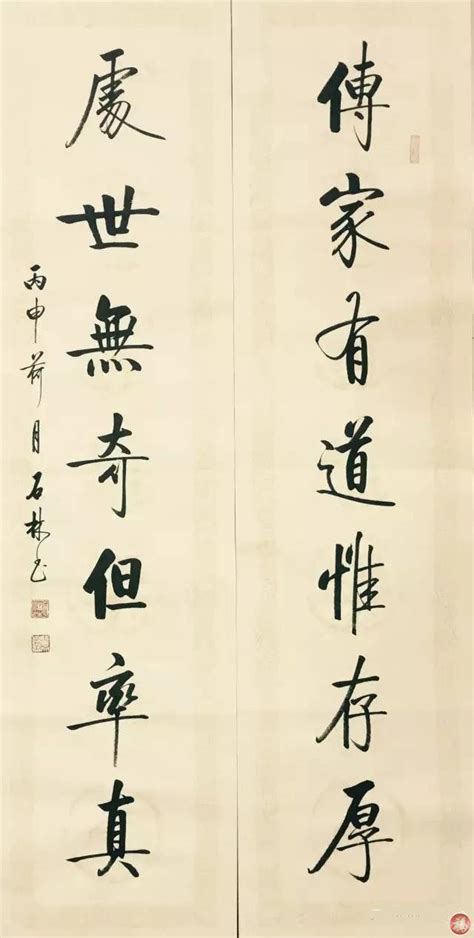 傳家有道惟存厚
處世無奇但率真
丙申荷月石林书